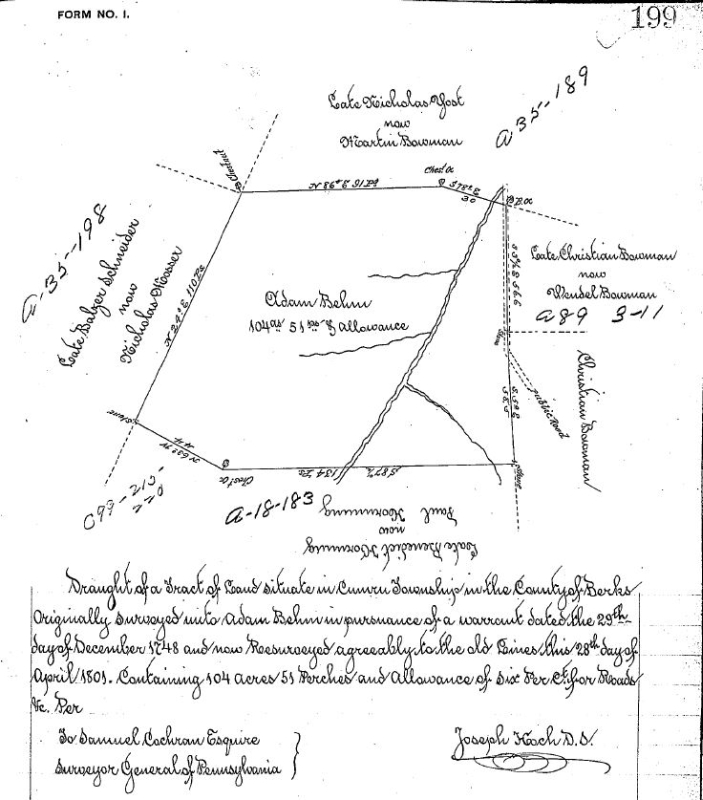 FORM NO. 1.
199
Late Nicholas Yost
now
Martin Bowman
A-35-189
Chestnut
N 86° E 91 Ps
Chest. O
S 78° E
30
B.O.
A-35-198
Late Balzer Schneider
now
Nicholas Mosser
N 24° E 110 Ps
Adam Behm
104 as 51 ps & Allowance
Late Christian Bowman
now
Wendel Bowman
A 89 3-11
Stone
Christian Bowman
Public Road
Stone
Stone
N 62° W
44
Chest. O
134 Ps
S 87°
C99-210-
220
A-18-183
Late Benedict Hornung
now
Paul Hornung
Draught of a Tract of Land situate in Cumru Township in the County of Berks
Originally surveyed unto Adam Behm in pursuance of a warrant dated the 29th
day of December 1748 and now Resurveyed agreeably to the old Lines this 28th day of
April 1801. Containing 104 acres 51 Perches and Allowance of six Per Ct. for Roads
&c. Per
To Samuel Cochran Esquire
Surveyor General of Pennsylvania
Joseph Koch D.S.